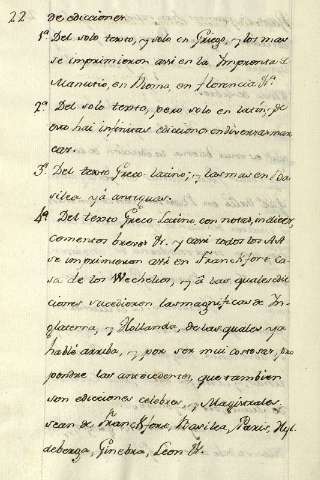 22 de ediciones.
1ª Del solo texto, y solo en Griego, y los mas
se imprimieron assi en la Imprenta de
Manucio, en Roma, en Florencia &ª.
2ª Del solo texto, pero solo en latin, y de
eso hai infinitas ediciones en diversas mar
cas.
3ª Del texto Greco-latino; y las mas en Ba
silea yá antiguas.
4ª Del texto Greco Latino con notas, indices,
comentos breves &ª. y assi todos los AA
se imprimieron assi en Francfort, ca
sa de los Wechelios, y á las quales edi
ciones sucedieron las magnificas de In
glaterra, y Hollanda, de las quales ya
hablé arriba, y por ser mui costosas, pro
pondre las antecedentes, que tambien
son ediciones celebres y Magistrales.
sean de Francfort, Basilea, Paris, Hey
delberga, Ginebra, Leon &ª.